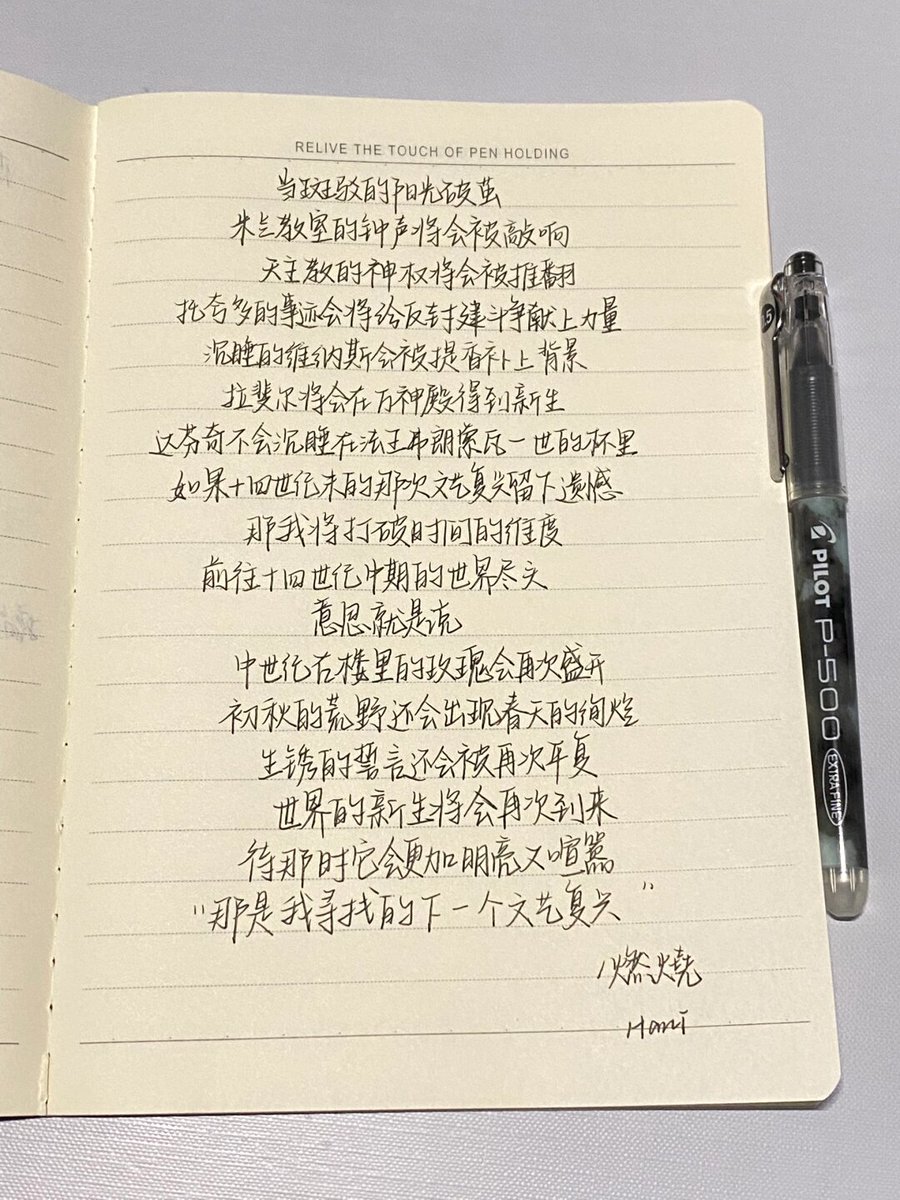 RELIVE THE TOUCH OF PEN HOLDING
当斑驳的阳光破茧
米兰教室的钟声将会被敲响
天主教的神权将会被推翻
托夸多的事迹会将给反封建斗争献上力量
沉睡的维纳斯会被提香补上背景
拉斐尔将会在万神殿得到新生
达芬奇不会沉睡在法王弗朗索瓦一世的怀里
如果十四世纪末的那次文艺复兴留下遗憾
那我将打破时间的维度
前往十四世纪中期的世界尽头
意思就是说
中世纪古楼里的玫瑰会再次盛开
初秋的荒野还会出现春天的绚烂
生锈的誓言还会被再次平复
世界的新生将会再次到来
待那时它会更加明亮又喧嚣
“那是我寻找的下一个文艺复兴”
燃燒
PILOT P-500
EXTRA FINE